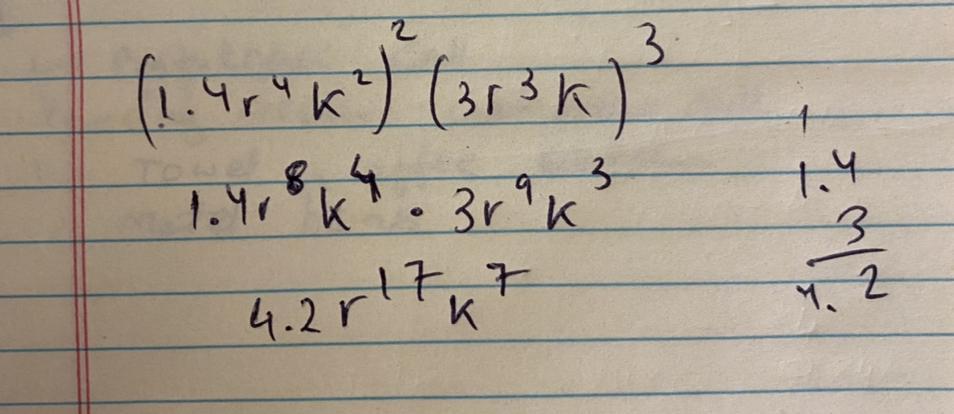 (1.4r⁴k²)² (3r³k)³
1.4r⁸k⁴ · 3r⁹k³
4.2r¹⁷k⁷
1
1.4
3
4.2